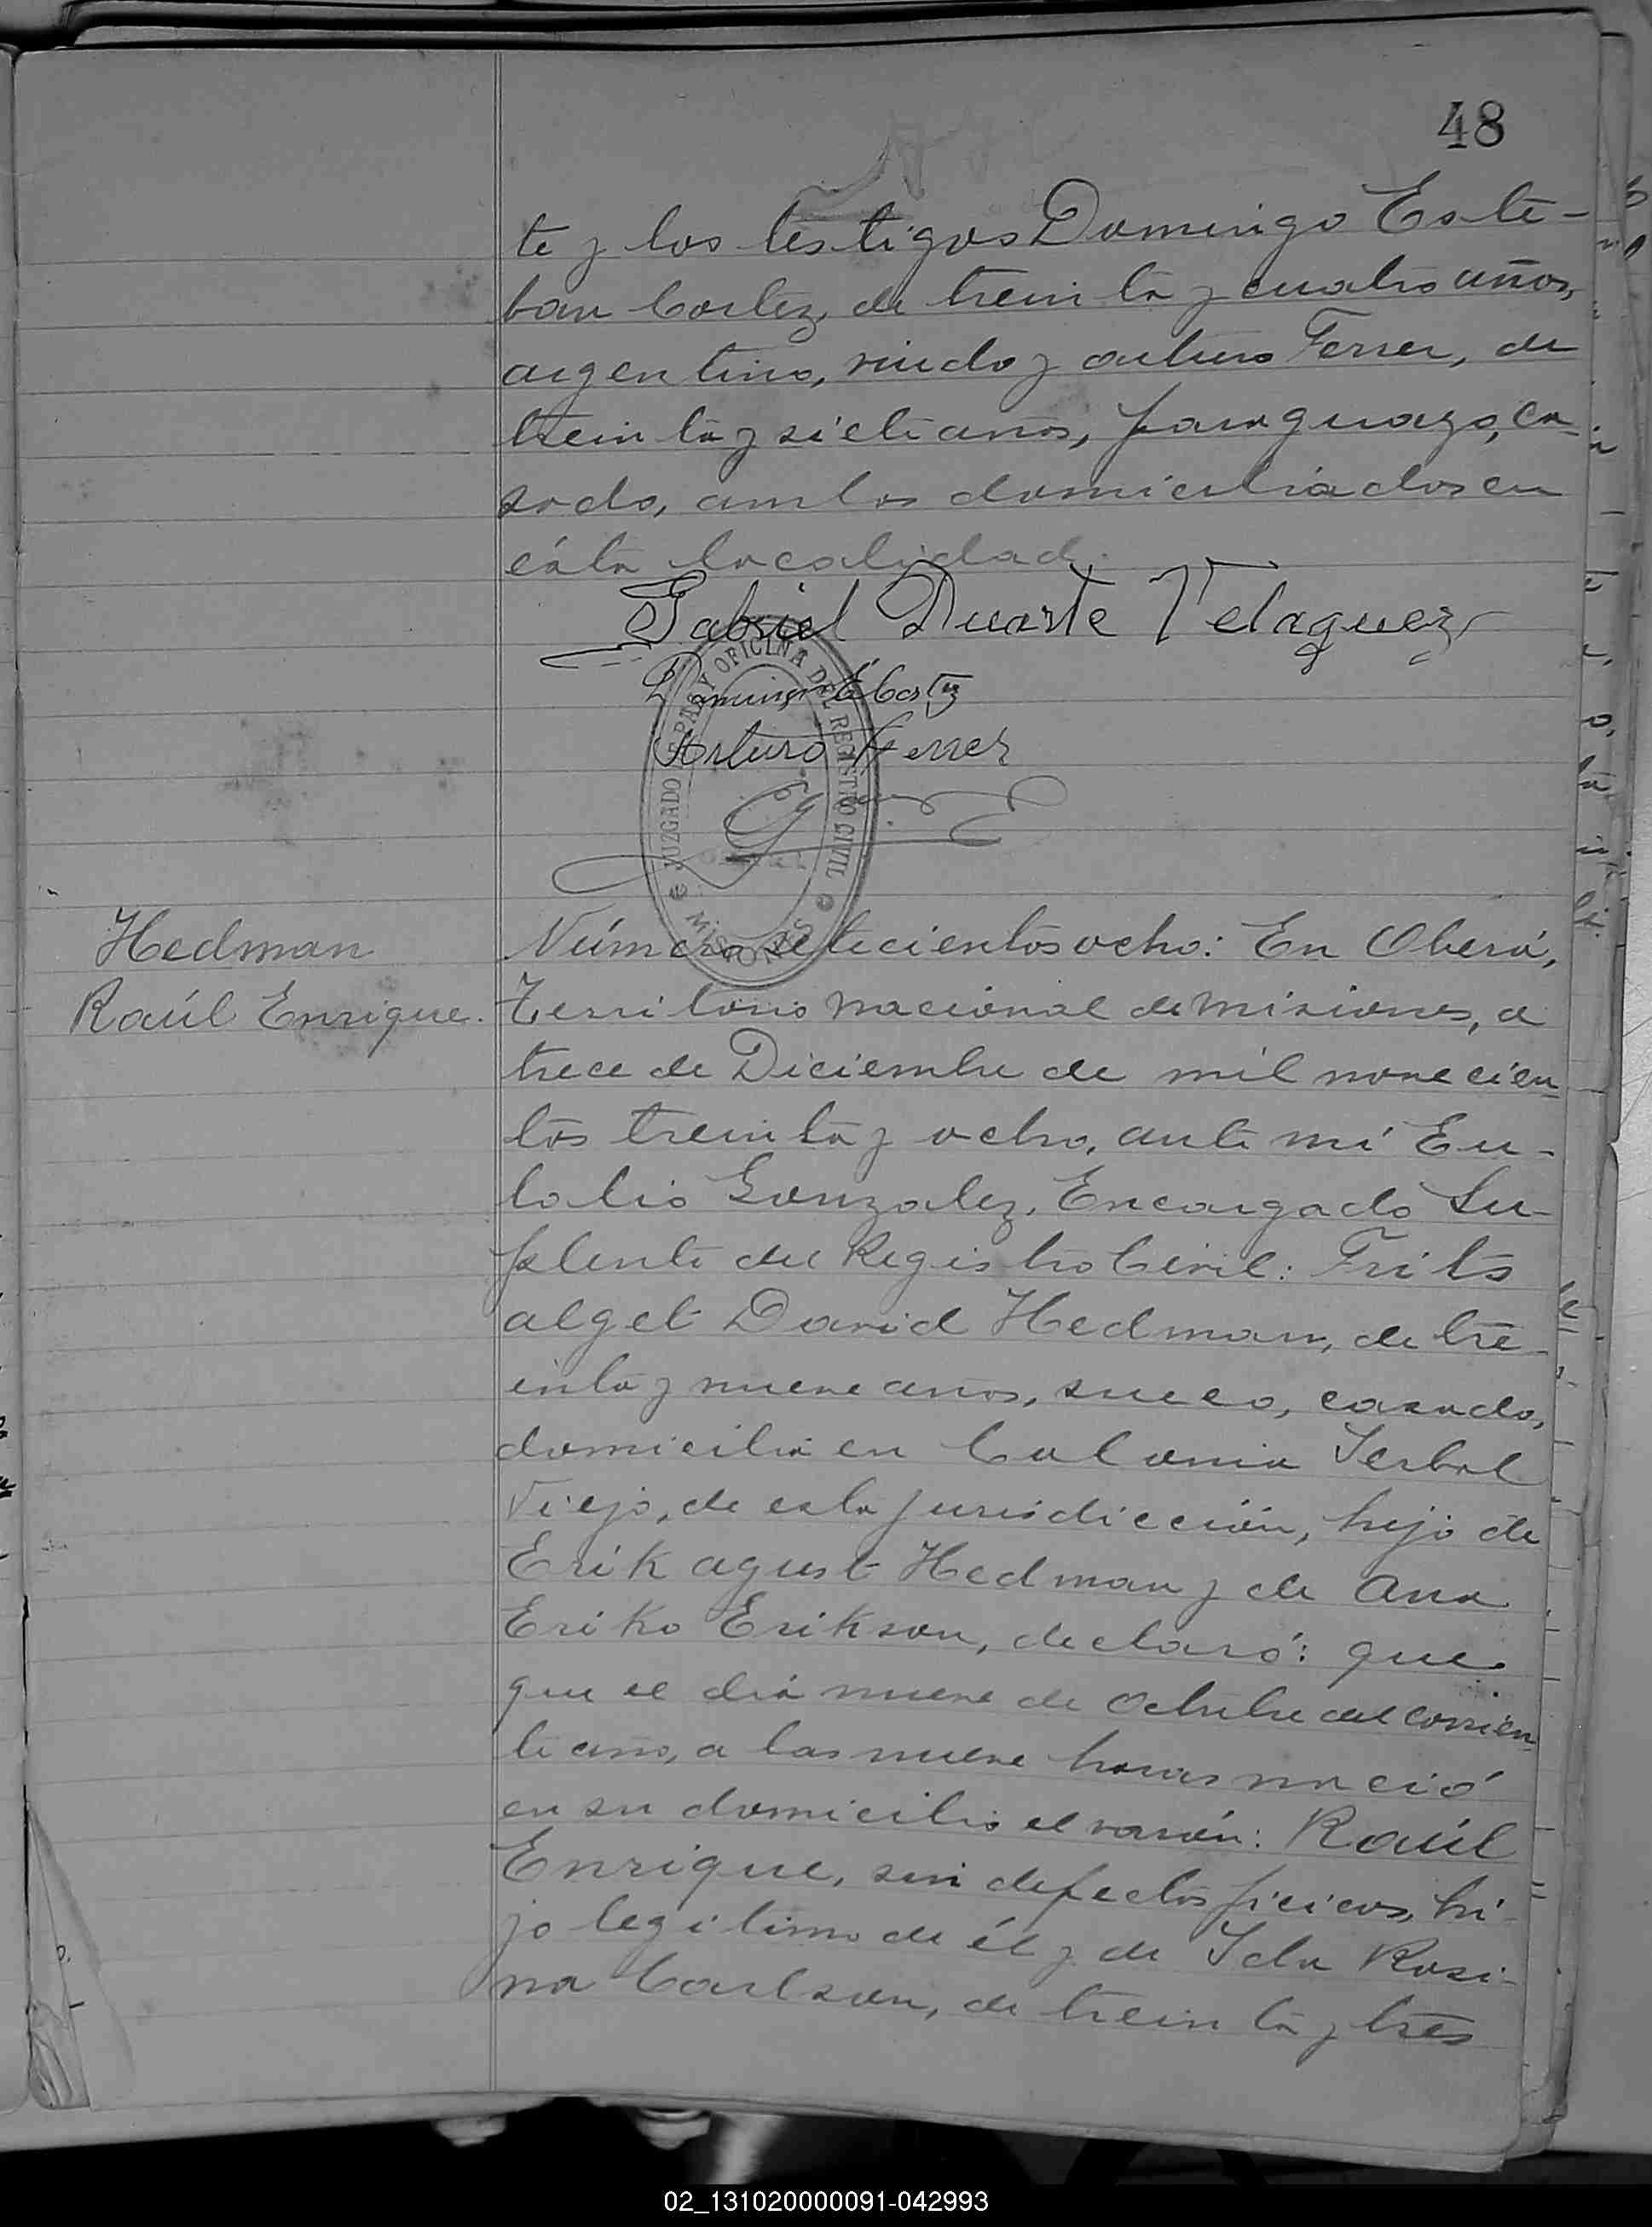 48
te y los testigos Domingo Este-
ban Cortez, de treinta y cuatro años,
argentino, viudo y arturo Ferrer, de
treinta y siete años, paraguayo, ca-
sado, ambos domiciliados en
ésta localidad.
Gabriel Duarte Velaquez
Domingo E Cortez
Arturo Ferrer
JUZGADO DE PAS Y OFICINA DEL REGISTRO CIVIL
MISIONES
Hedman
Raúl Enrique.
Número setecientos ocho: En Oberá,
Territorio nacional de misiones, a
trece de Diciembre de mil novecien-
tos treinta y ocho, ante mí Eu-
lalio Gonzalez, Encargado Su-
plente del Registro Civil: Frits
alget David Hedman, de tre-
inta y nueve años, sueco, casado,
domicilia en Colonia Yerbal
Viejo, de esta jurisdicción, hijo de
Erik agust Hedman y de Ana
Eriko Erikson, declaró: que
que el día nueve de Octubre del corrien-
te año, a las nueve horas nació
en su domicilio el varón: Raúl
Enrique, sin defectos ficicos, hi-
jo legitimo de él y de Ida Rosi-
na Carlson, de treinta y tres
02_131020000091-042993